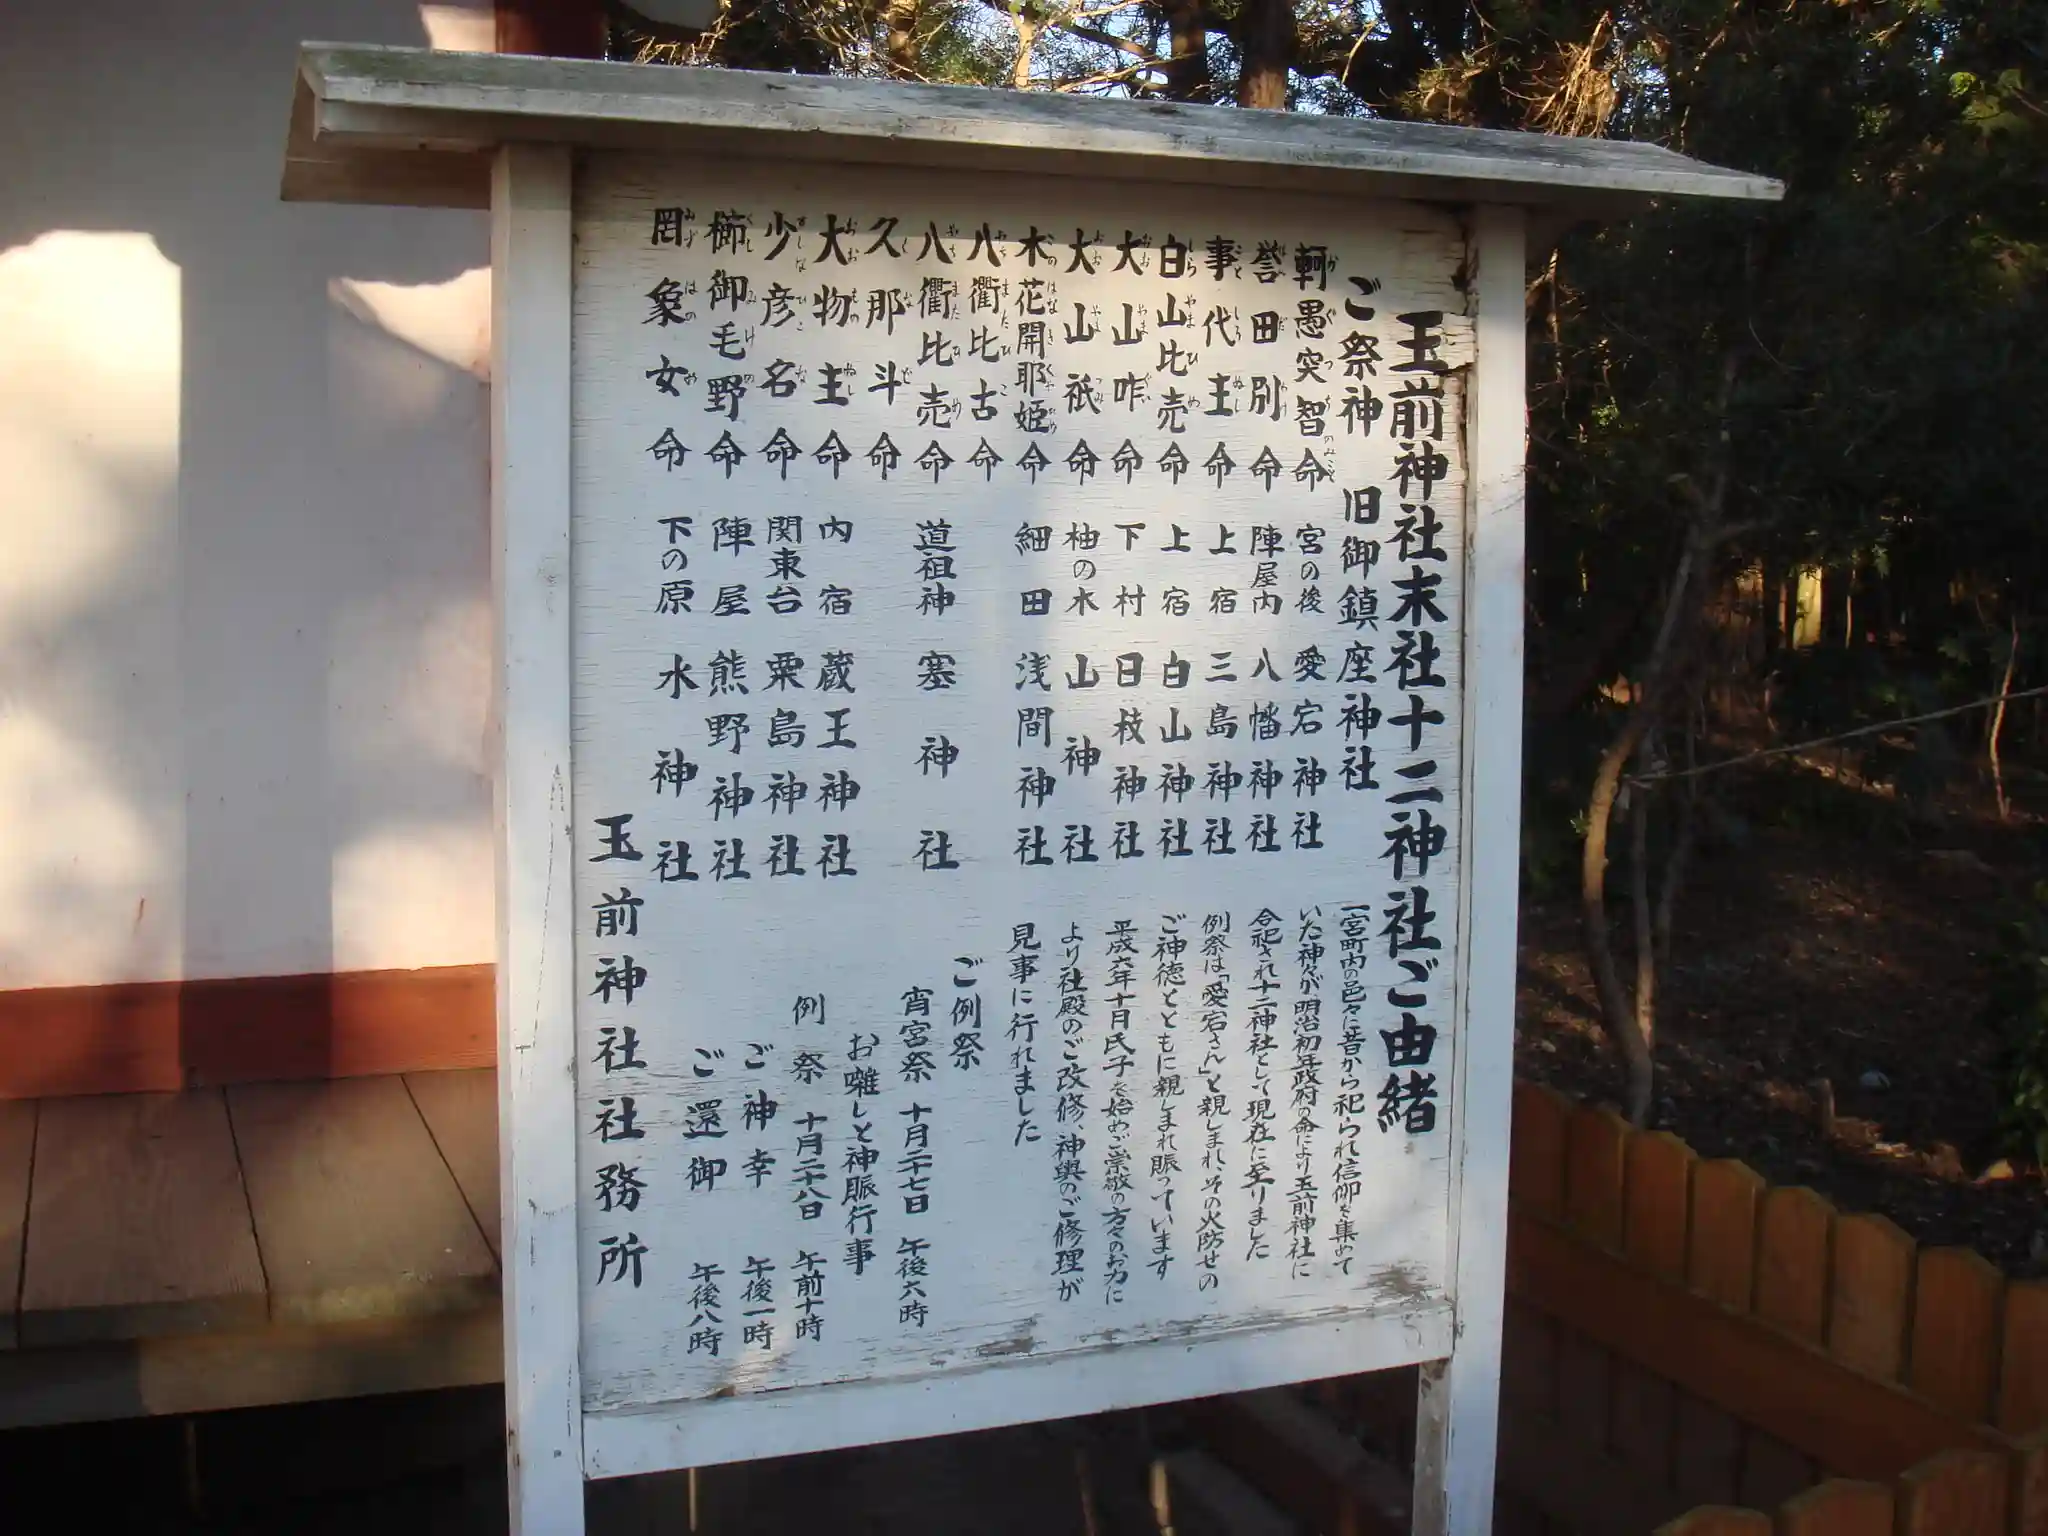 玉前神社末社十二神社ご由緒
ご祭神 旧御鎮座神社
軻愚突智命 宮の後 愛宕神社
誉田別命 陣屋内 八幡神社
事代主命 上宿 三島神社
白山比売命 上宿 白山神社
大山咋命 下村 日枝神社
大山祇命 柚の木 山神社
木花開耶姫命 細田 浅間神社
八衢比古命
八衢比売命 道祖神 塞神社
久那斗命
大物主命 内宿 蔵王神社
少彦名命 関東台 粟島神社
櫛御毛野命 陣屋 熊野神社
罔象女命 下の原 水神社
一宮町内の邑々に昔から祀られ信仰を集めて
いた神々が明治初年政府の命により玉前神社に
合祀され十二神社として現在に至りました
例祭は「愛宕さん」と親しまれ、その火防せの
ご神徳とともに親しまれ賑っています
平成六年十月氏子を始めご崇敬の方々のお力に
より社殿のご改修、神輿のご修理が
見事に行れました
ご例祭
宵宮祭 十月二十七日 午後六時
お囃しと神賑行事
例祭 十月二十八日 午前十時
ご神幸 午後一時
ご還御 午後八時
玉前神社社務所